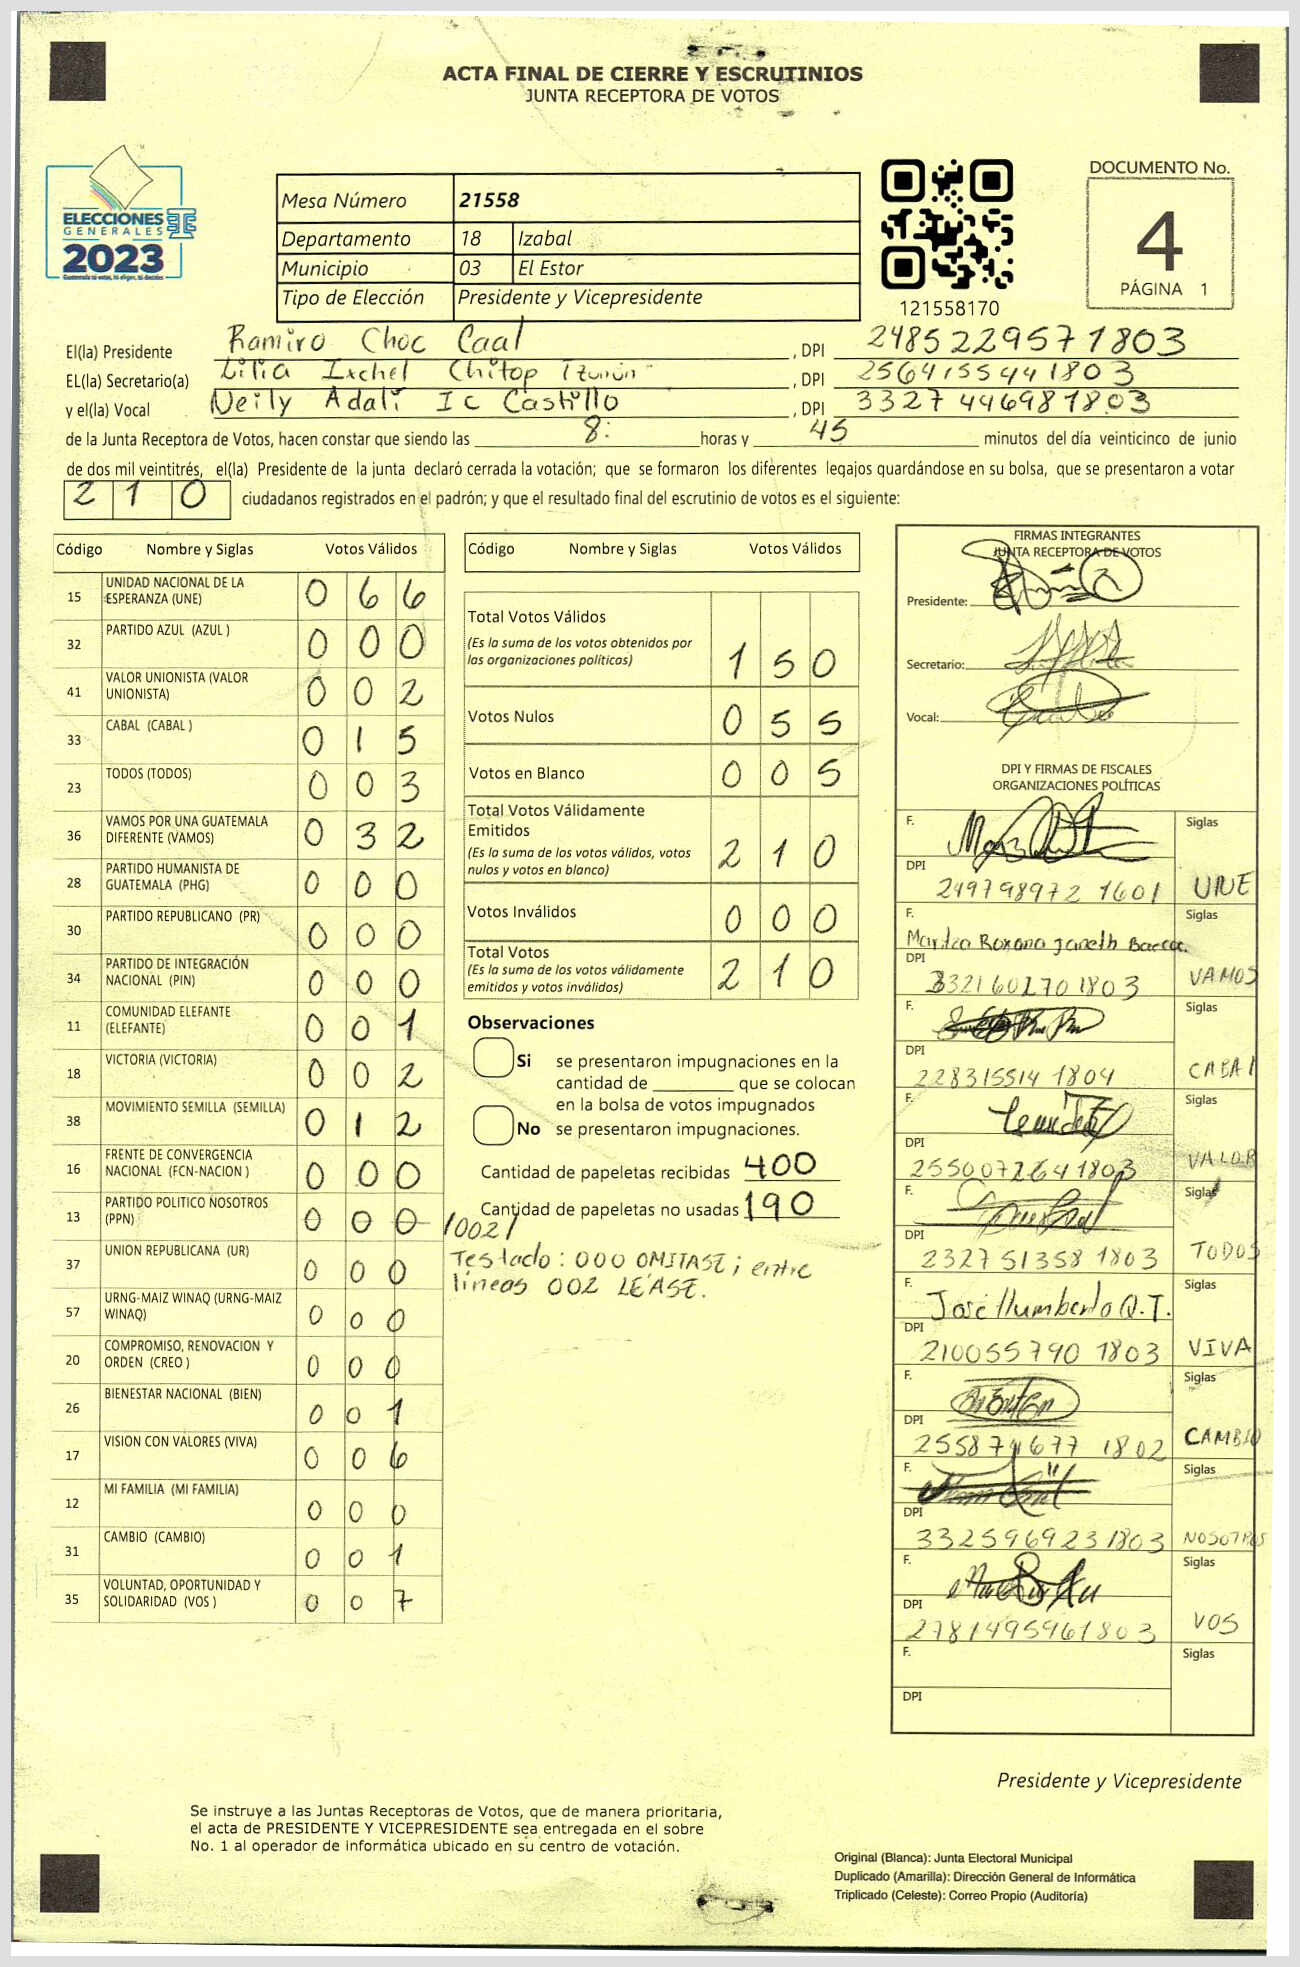 ACTA FINAL DE CIERRE Y ESCRUTINIOS
JUNTA RECEPTORA DE VOTOS
ELECCIONES
GENERALES
2023
Mesa Número 21558
Departamento 18 Izabal
Municipio 03 El Estor
Tipo de Elección Presidente y Vicepresidente
121558170
DOCUMENTO No.
4
PÁGINA 1
El(la) Presidente Ramiro Choc Caal , DPI 2485229571803
EL(la) Secretario(a) Lilia Ixchel Chitop , DPI 2564155441803
y el(la) Vocal Neily Adalí Ic Castillo , DPI 3327446981803
de la Junta Receptora de Votos, hacen constar que siendo las 8: horas y 45 minutos del día veinticinco de junio
de dos mil veintitrés, el(la) Presidente de la junta declaró cerrada la votación; que se formaron los diferentes legajos guardándose en su bolsa, que se presentaron a votar
210 ciudadanos registrados en el padrón; y que el resultado final del escrutinio de votos es el siguiente:
Código Nombre y Siglas Votos Válidos
15 UNIDAD NACIONAL DE LA ESPERANZA (UNE) 0 6 6
32 PARTIDO AZUL (AZUL ) 0 0 0
41 VALOR UNIONISTA (VALOR UNIONISTA) 0 0 2
33 CABAL (CABAL ) 0 1 5
23 TODOS (TODOS) 0 0 3
36 VAMOS POR UNA GUATEMALA DIFERENTE (VAMOS) 0 3 2
28 PARTIDO HUMANISTA DE GUATEMALA (PHG) 0 0 0
30 PARTIDO REPUBLICANO (PR) 0 0 0
34 PARTIDO DE INTEGRACIÓN NACIONAL (PIN) 0 0 0
11 COMUNIDAD ELEFANTE (ELEFANTE) 0 0 1
18 VICTORIA (VICTORIA) 0 0 2
38 MOVIMIENTO SEMILLA (SEMILLA) 0 1 2
16 FRENTE DE CONVERGENCIA NACIONAL (FCN-NACION ) 0 0 0
13 PARTIDO POLITICO NOSOTROS (PPN) 0 0 0 /002/
37 UNION REPUBLICANA (UR) 0 0 0
57 URNG-MAIZ WINAQ (URNG-MAIZ WINAQ) 0 0 0
20 COMPROMISO, RENOVACION Y ORDEN (CREO ) 0 0 0
26 BIENESTAR NACIONAL (BIEN) 0 0 1
17 VISION CON VALORES (VIVA) 0 0 6
12 MI FAMILIA (MI FAMILIA) 0 0 0
31 CAMBIO (CAMBIO) 0 0 1
35 VOLUNTAD, OPORTUNIDAD Y SOLIDARIDAD (VOS ) 0 0 7
Código Nombre y Siglas Votos Válidos
Total Votos Válidos
(Es la suma de los votos obtenidos por
las organizaciones políticas) 1 5 0
Votos Nulos 0 5 5
Votos en Blanco 0 0 5
Total Votos Válidamente
Emitidos
(Es la suma de los votos válidos, votos
nulos y votos en blanco) 2 1 0
Votos Inválidos 0 0 0
Total Votos
(Es la suma de los votos válidamente
emitidos y votos inválidos) 2 1 0
Observaciones
Si se presentaron impugnaciones en la
cantidad de ________ que se colocan
en la bolsa de votos impugnados
No se presentaron impugnaciones.
Cantidad de papeletas recibidas 400
Cantidad de papeletas no usadas 190
Testado: 000 OMITASE; entre
líneas 002 LEASE.
FIRMAS INTEGRANTES
JUNTA RECEPTORA DE VOTOS
Presidente:
Secretario:
Vocal:
DPI Y FIRMAS DE FISCALES
ORGANIZACIONES POLÍTICAS
F. Siglas
DPI 249798972 1601 UNE
F. Maritza Roxana Janeth Siglas
DPI 332160270 1803 VAMOS
F. Siglas
DPI 228315514 1804 CABAL
F. Siglas
DPI 255007264 1803 VALOR
F. Siglas
DPI 232751358 1803 TODOS
F. José Humberto Q.T. Siglas
DPI 210055790 1803 VIVA
F. Siglas
DPI 255871677 1802 CAMBIO
F. Siglas
DPI 332596923 1803 NOSOTROS
F. Siglas
DPI 2781495961803 VOS
F. Siglas
DPI
Presidente y Vicepresidente
Se instruye a las Juntas Receptoras de Votos, que de manera prioritaria,
el acta de PRESIDENTE Y VICEPRESIDENTE sea entregada en el sobre
No. 1 al operador de informática ubicado en su centro de votación.
Original (Blanca): Junta Electoral Municipal
Duplicado (Amarilla): Dirección General de Informática
Triplicado (Celeste): Correo Propio (Auditoría)